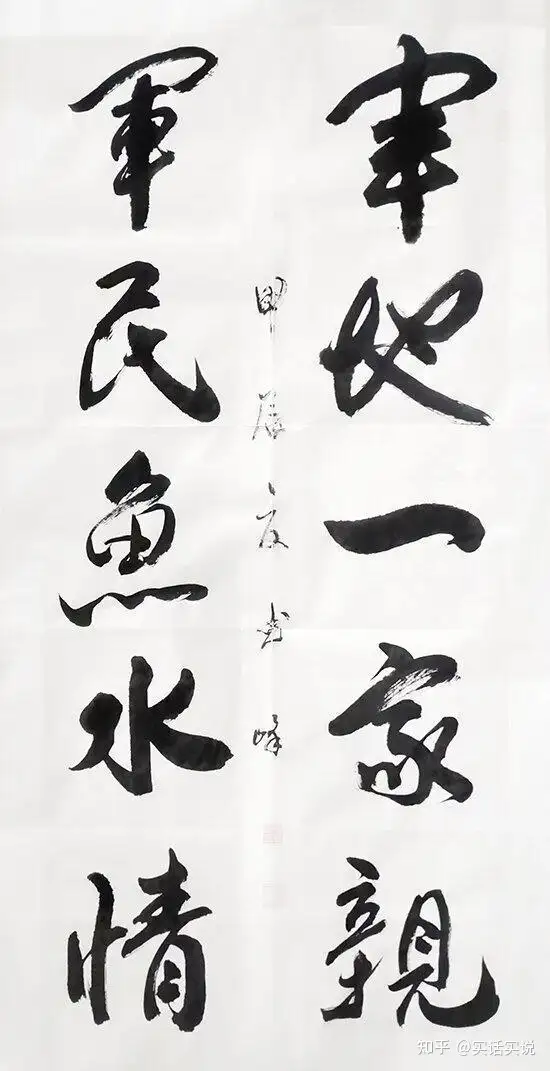 軍地一家親
軍民魚水情
甲辰夏 峰
知乎 @实话实说